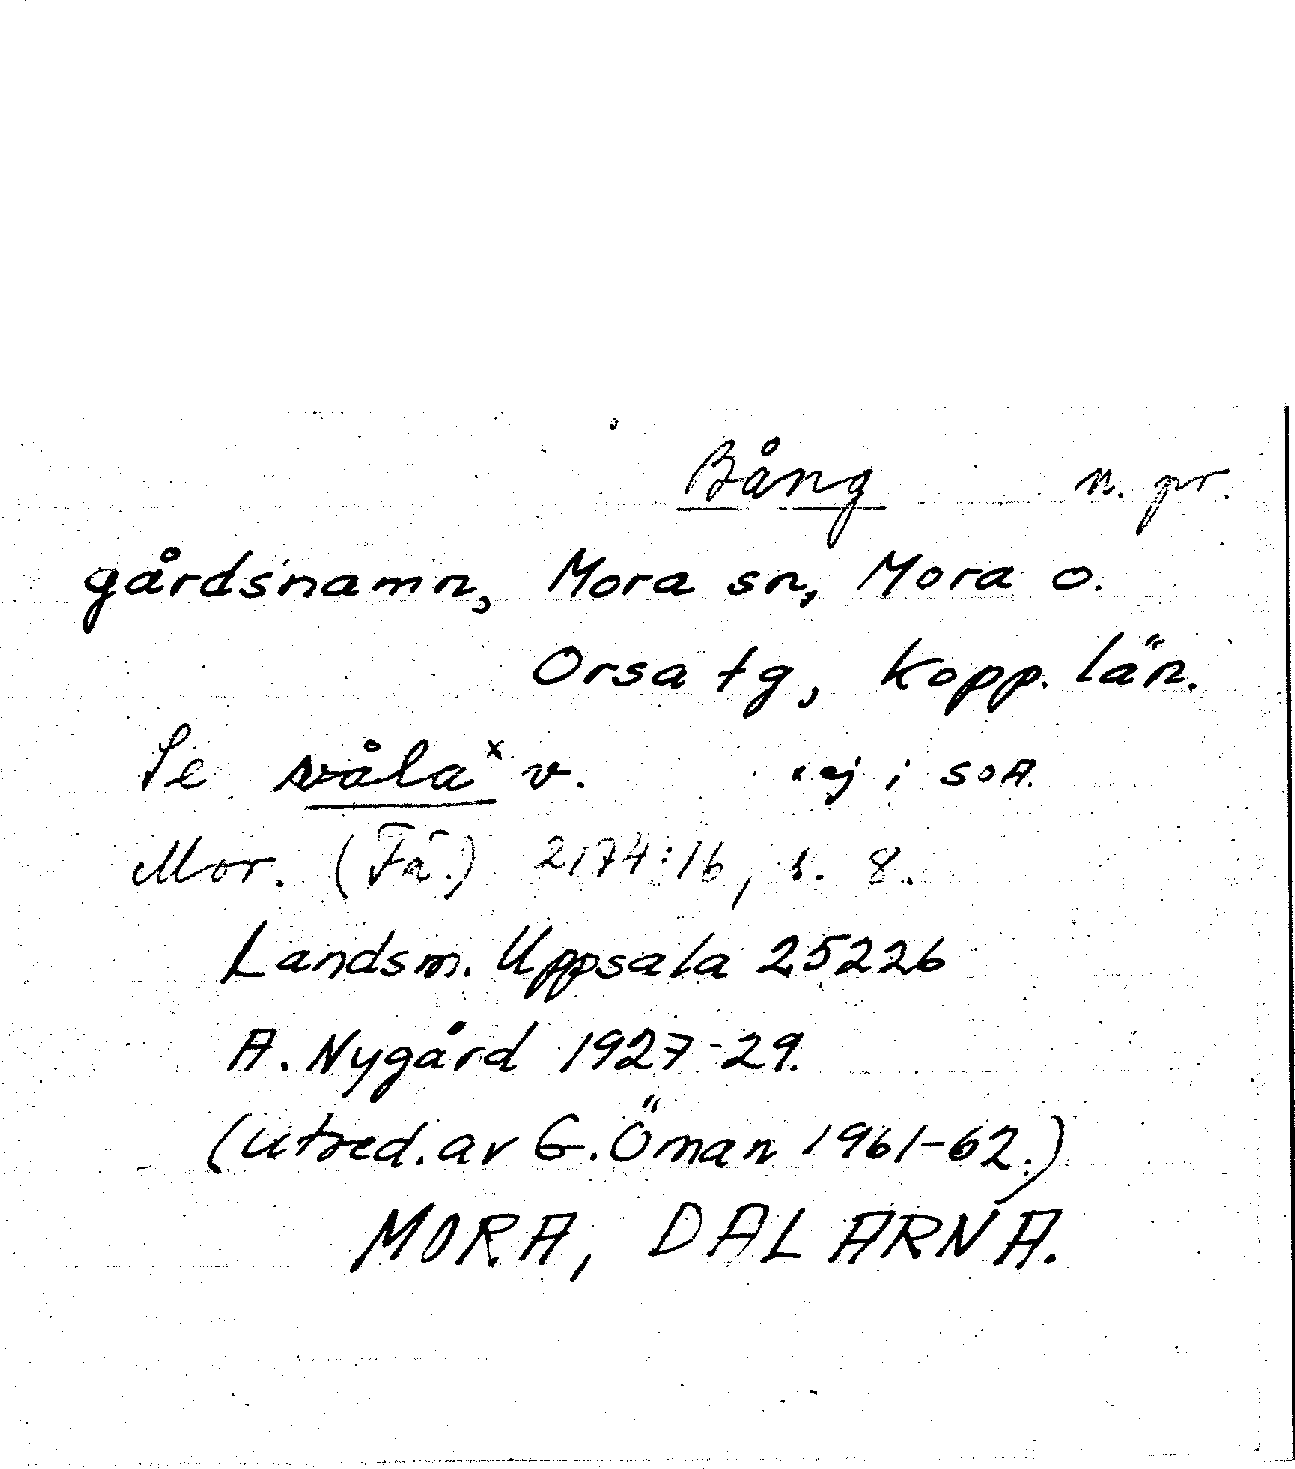 Bång n. pr.
gårdsnamn, Mora sn, Mora o.
Orsa tg, Kopp. län.
Se svåla x v. ej i SOÄ.
Mor. (Få.) 2174:16, s. 8.
Landsm. Uppsala 25226
A. Nygård 1927-29.
(utred. av G. Öman 1961-62.)
MORA, DALARNA.